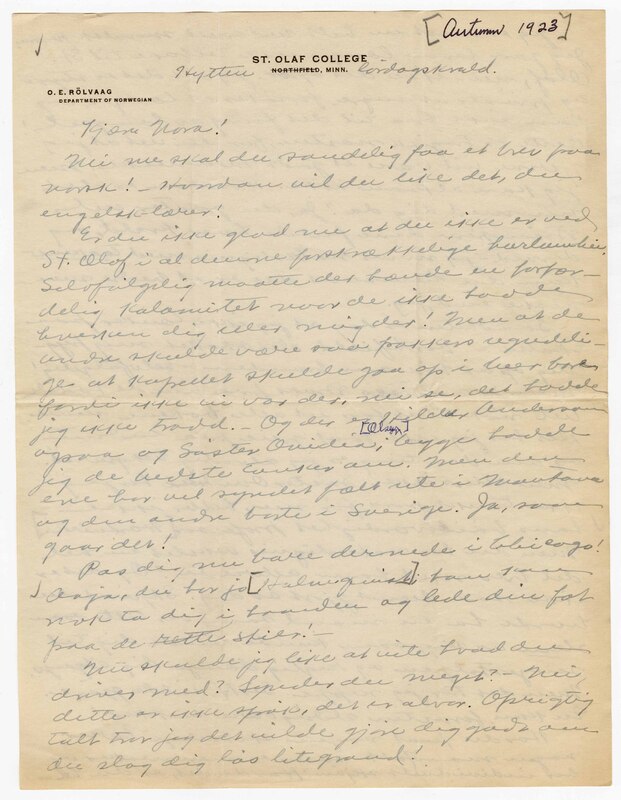 [Autumn 1923]
ST. OLAF COLLEGE
NORTHFIELD, MINN.
Hytten lördagskvæld.
O. E. RÖLVAAG
DEPARTMENT OF NORWEGIAN
Kjære Nora!
Nei nu skal du sandelig faa et brev paa
norsk! – Hvordan vil du like det, du
engelsk-lærer!
Er du ikke glad nu at du ikke er ved
St. Olaf i al denne forskrækkelige
Selvfölgelig maatte der hænde en forfær-
delig kalamitet naar de ikke hadde
hverken dig eller mig der! Men at de
andre skulde være saa pokkers
ge at kapellet skulde gaa op i bare
fordi ikke vi var der, nei se, det hadde
jeg ikke trodd. – Og der er Hilda Anderson
[Olsen]
ogsaa og Söster Ovidia, begge hadde
jeg de bedste tanker om. Men den
ene har vel syndet fælt ute i Montana
og den andre borte i Sverige. Ja, saan
gaar det!
Pas dig nu bare dernede i Chicago!
Aaja, du har jo [Halmquist] han kan
nok ta dig i haanden og lede din fot
paa de rette stier! –
Nu skulde jeg like at vite hvad du
driver med? Synder du meget? – Nei
dette er ikke spøk, det er alvor. Oprigtig
talt tror jeg det vilde gjöre dig godt om
du slog dig lös litegrand!